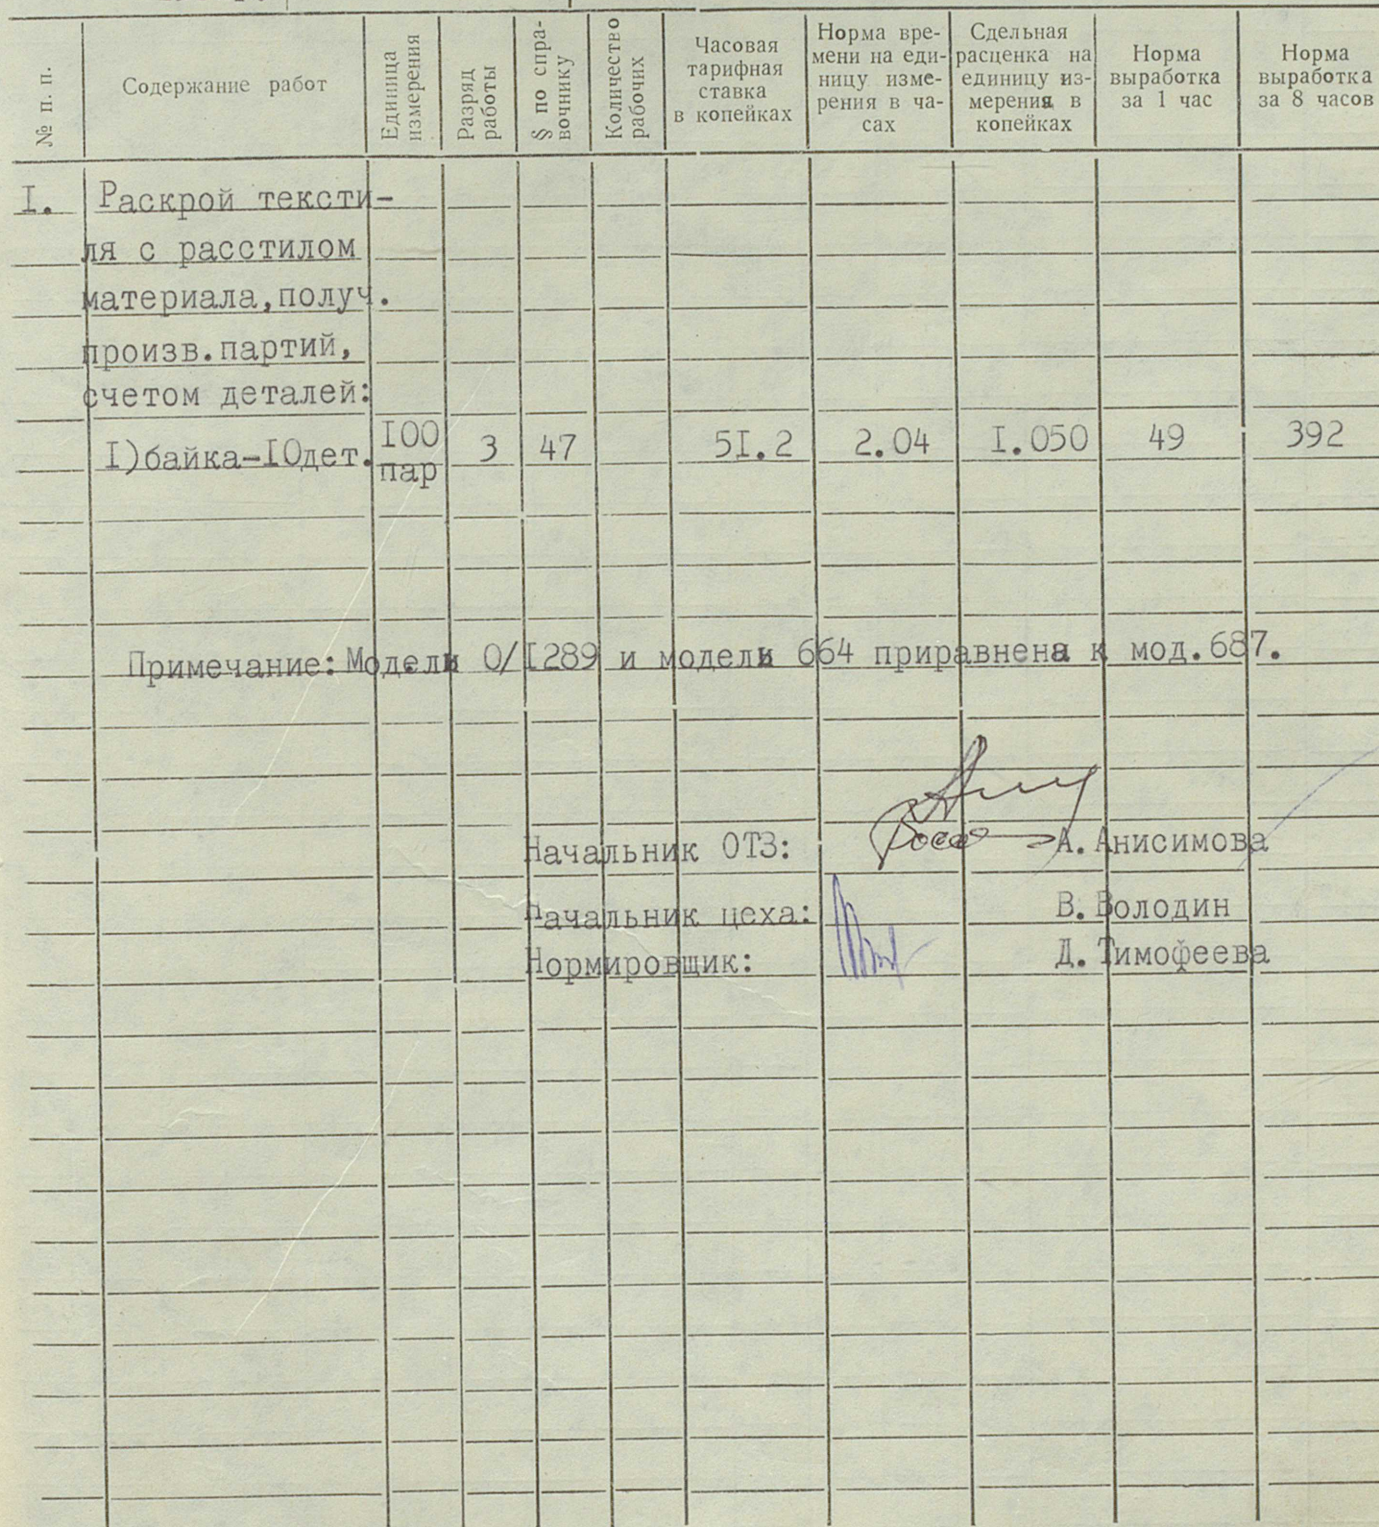 № п. п.
Содержание работ
Единица
измерения
Разряд
работы
§ по спра-
вочнику
Количество
рабочих
Часовая
тарифная
ставка
в копейках
Норма вре-
мени на еди-
ницу изме-
рения в ча-
сах
Сдельная
расценка на
единицу из-
мерения в
копейках
Норма
выработка
за 1 час
Норма
выработка
за 8 часов
I. Раскрой тексти-
ля с расстилом
материала,получ.
произв.партий,
счетом деталей:
I)байка-IOдет. I00 пар 3 47 5I.2 2.04 I.050 49 392
Примечание: Модели 0/I289 и модель 664 приравнена к мод.687.
Начальник ОТЗ: А.Анисимова
Начальник цеха: В.Володин
Нормировщик: Д.Тимофеева